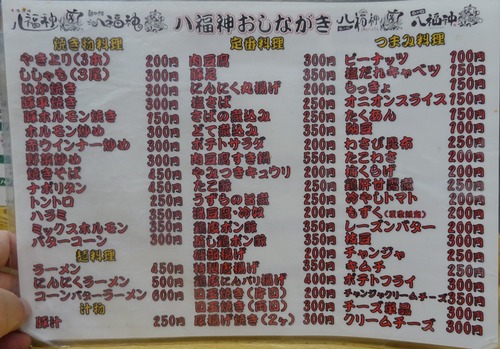 八福神 八福神 八福神おしながき 八福神 八福神
焼き物料理
やきとり(3本) 200円
ししゃも(3尾) 300円
いか焼き 300円
豚串焼き 300円
豚ホルモン焼き 300円
ホルモン炒め 300円
赤ウインナー炒め 300円
野菜炒め 300円
焼きそば 450円
ナポリタン 450円
トントロ 250円
ハラミ 350円
ミックスホルモン 350円
バターコーン 300円
麺料理
ラーメン 450円
にんにくラーメン 500円
コーンバターラーメン 600円
汁物
豚汁 250円
定番料理
肉豆腐 300円
豚足 350円
にんにく丸揚げ 300円
塩さば 250円
さばの煮込み 250円
もて煮込み 350円
ポテトサラダ 200円
肉豆腐すき鍋 350円
やみつきキュウリ 200円
たこ酢 250円
うずらの 250円
湯豆腐・冷奴 200円
鶏皮ポン酢 300円
蒸し鶏ポン酢 300円
300円
特製唐揚げ 350円
鶏皮にんにく揚げ 400円
300円
300円
厚揚げ焼き(2ヶ) 300円
つまみ料理
ピーナッツ 200円
塩だれキャベツ 250円
らっきょ 250円
オニオンスライス 250円
たくあん 250円
納豆 200円
わさび昆布 250円
たこわさ 250円
鶏肝甘露煮 250円
冷やしトマト 250円
もずく 250円
レーズンバター 200円
枝豆 300円
チャンジャ 250円
キムチ 250円
ポテトフライ 300円
チャンジャクリームチーズ 350円
チーズ単品 300円
クリームチーズ 300円